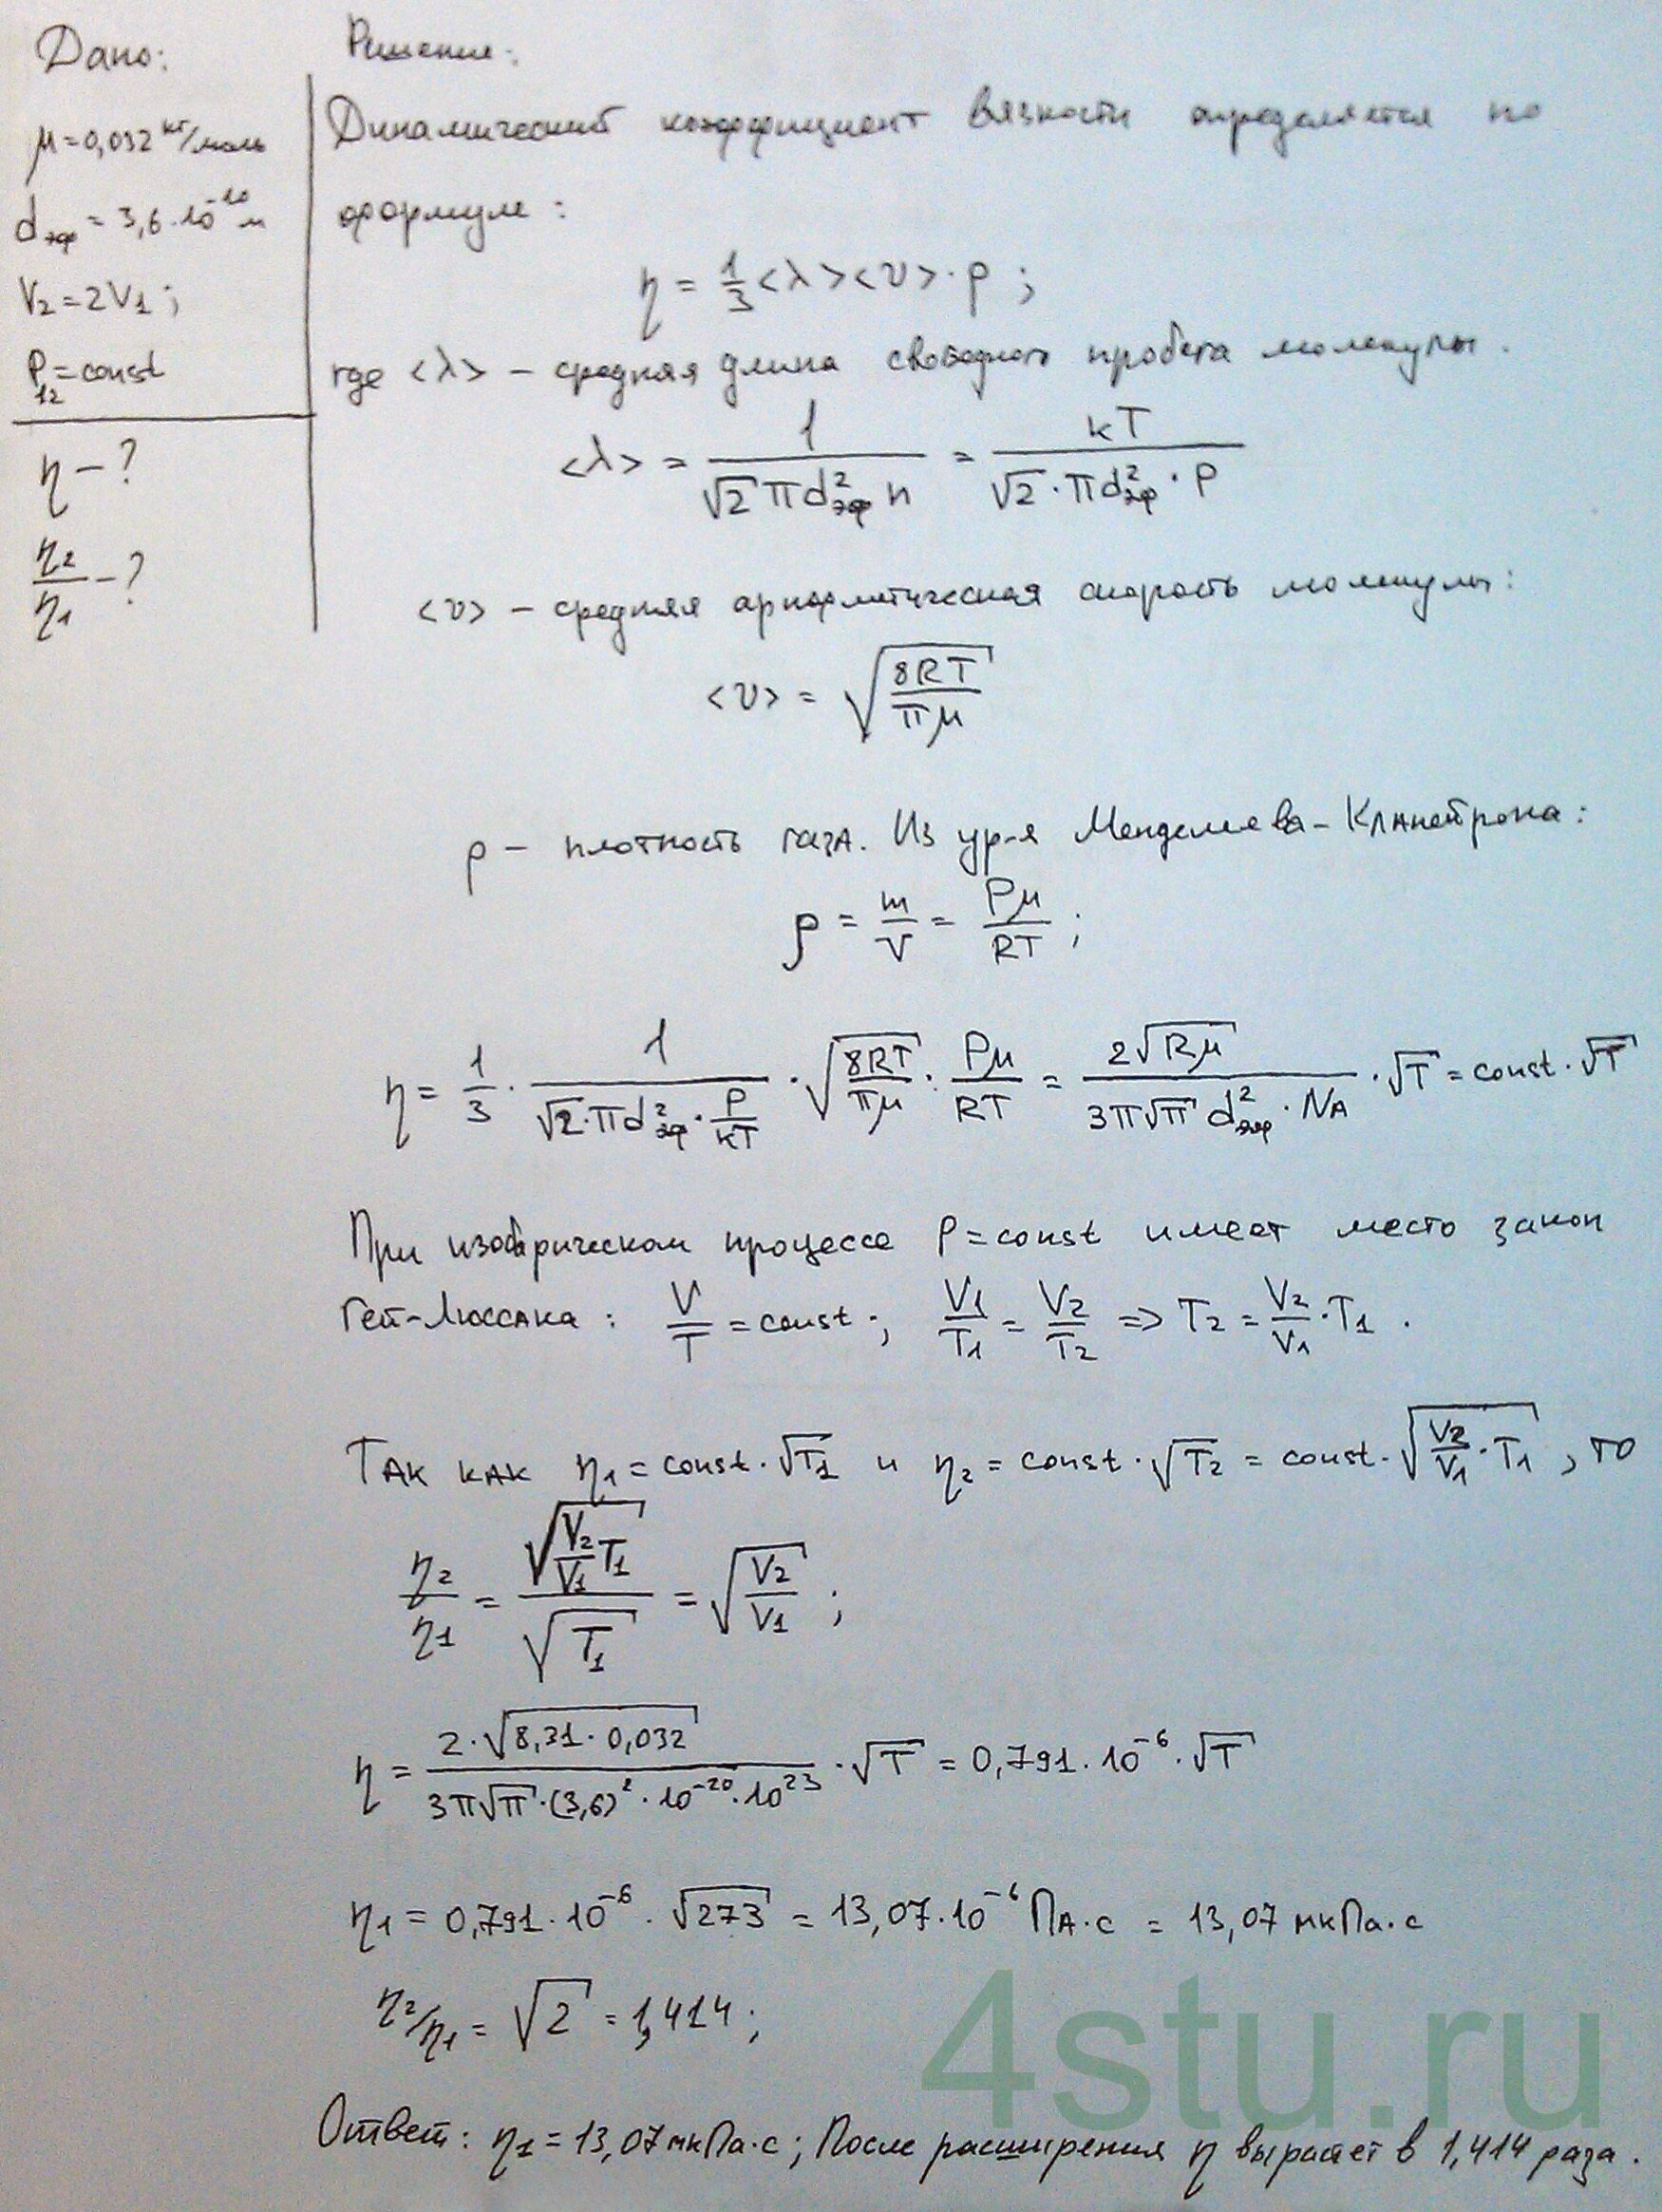 Дано:
μ=0,032 кг/моль
dэф = 3,6·10⁻¹⁰ м
V₂=2V₁;
P₁₂=const
η – ?
η₂/η₁ – ?
Решение:
Динамический коэффициент вязкости определяется по
формуле:
η = 1/3 <λ><υ>·ρ ;
где <λ> – средняя длина свободного пробега молекулы.
<λ> = 1/(√2 πd²эф n) = kT/(√2·πd²эф·P)
<υ> – средняя арифметическая скорость молекулы:
<υ> = √(8RT/πμ)
ρ – плотность газа. Из ур-я Менделеева-Клапейрона:
ρ = m/V = Pμ/RT ;
η = 1/3 · 1/(√2·πd²эф·P/kT) · √(8RT/πμ) · Pμ/RT = 2√(Rμ)/(3π√π d²эф·NA) · √T = const·√T
При изобарическом процессе P=const имеет место закон
Гей-Люссака: V/T = const ; V₁/T₁ = V₂/T₂ => T₂ = V₂/V₁·T₁ .
Так как η₁=const·√T₁ и η₂ = const·√T₂ = const·√(V₂/V₁·T₁) , то
η₂/η₁ = √(V₂/V₁ T₁)/√T₁ = √(V₂/V₁) ;
η = 2·√(8,31·0,032)/(3π√π·(3,6)²·10⁻²⁰·10²³) · √T = 0,791·10⁻⁶·√T
η₁ = 0,791·10⁻⁶·√273 = 13,07·10⁻⁶ Па·с = 13,07 мкПа·с
η₂/η₁ = √2 = 1,414 ;
Ответ: η₁ = 13,07 мкПа·с ; После расширения η вырастет в 1,414 раза .
4stu.ru